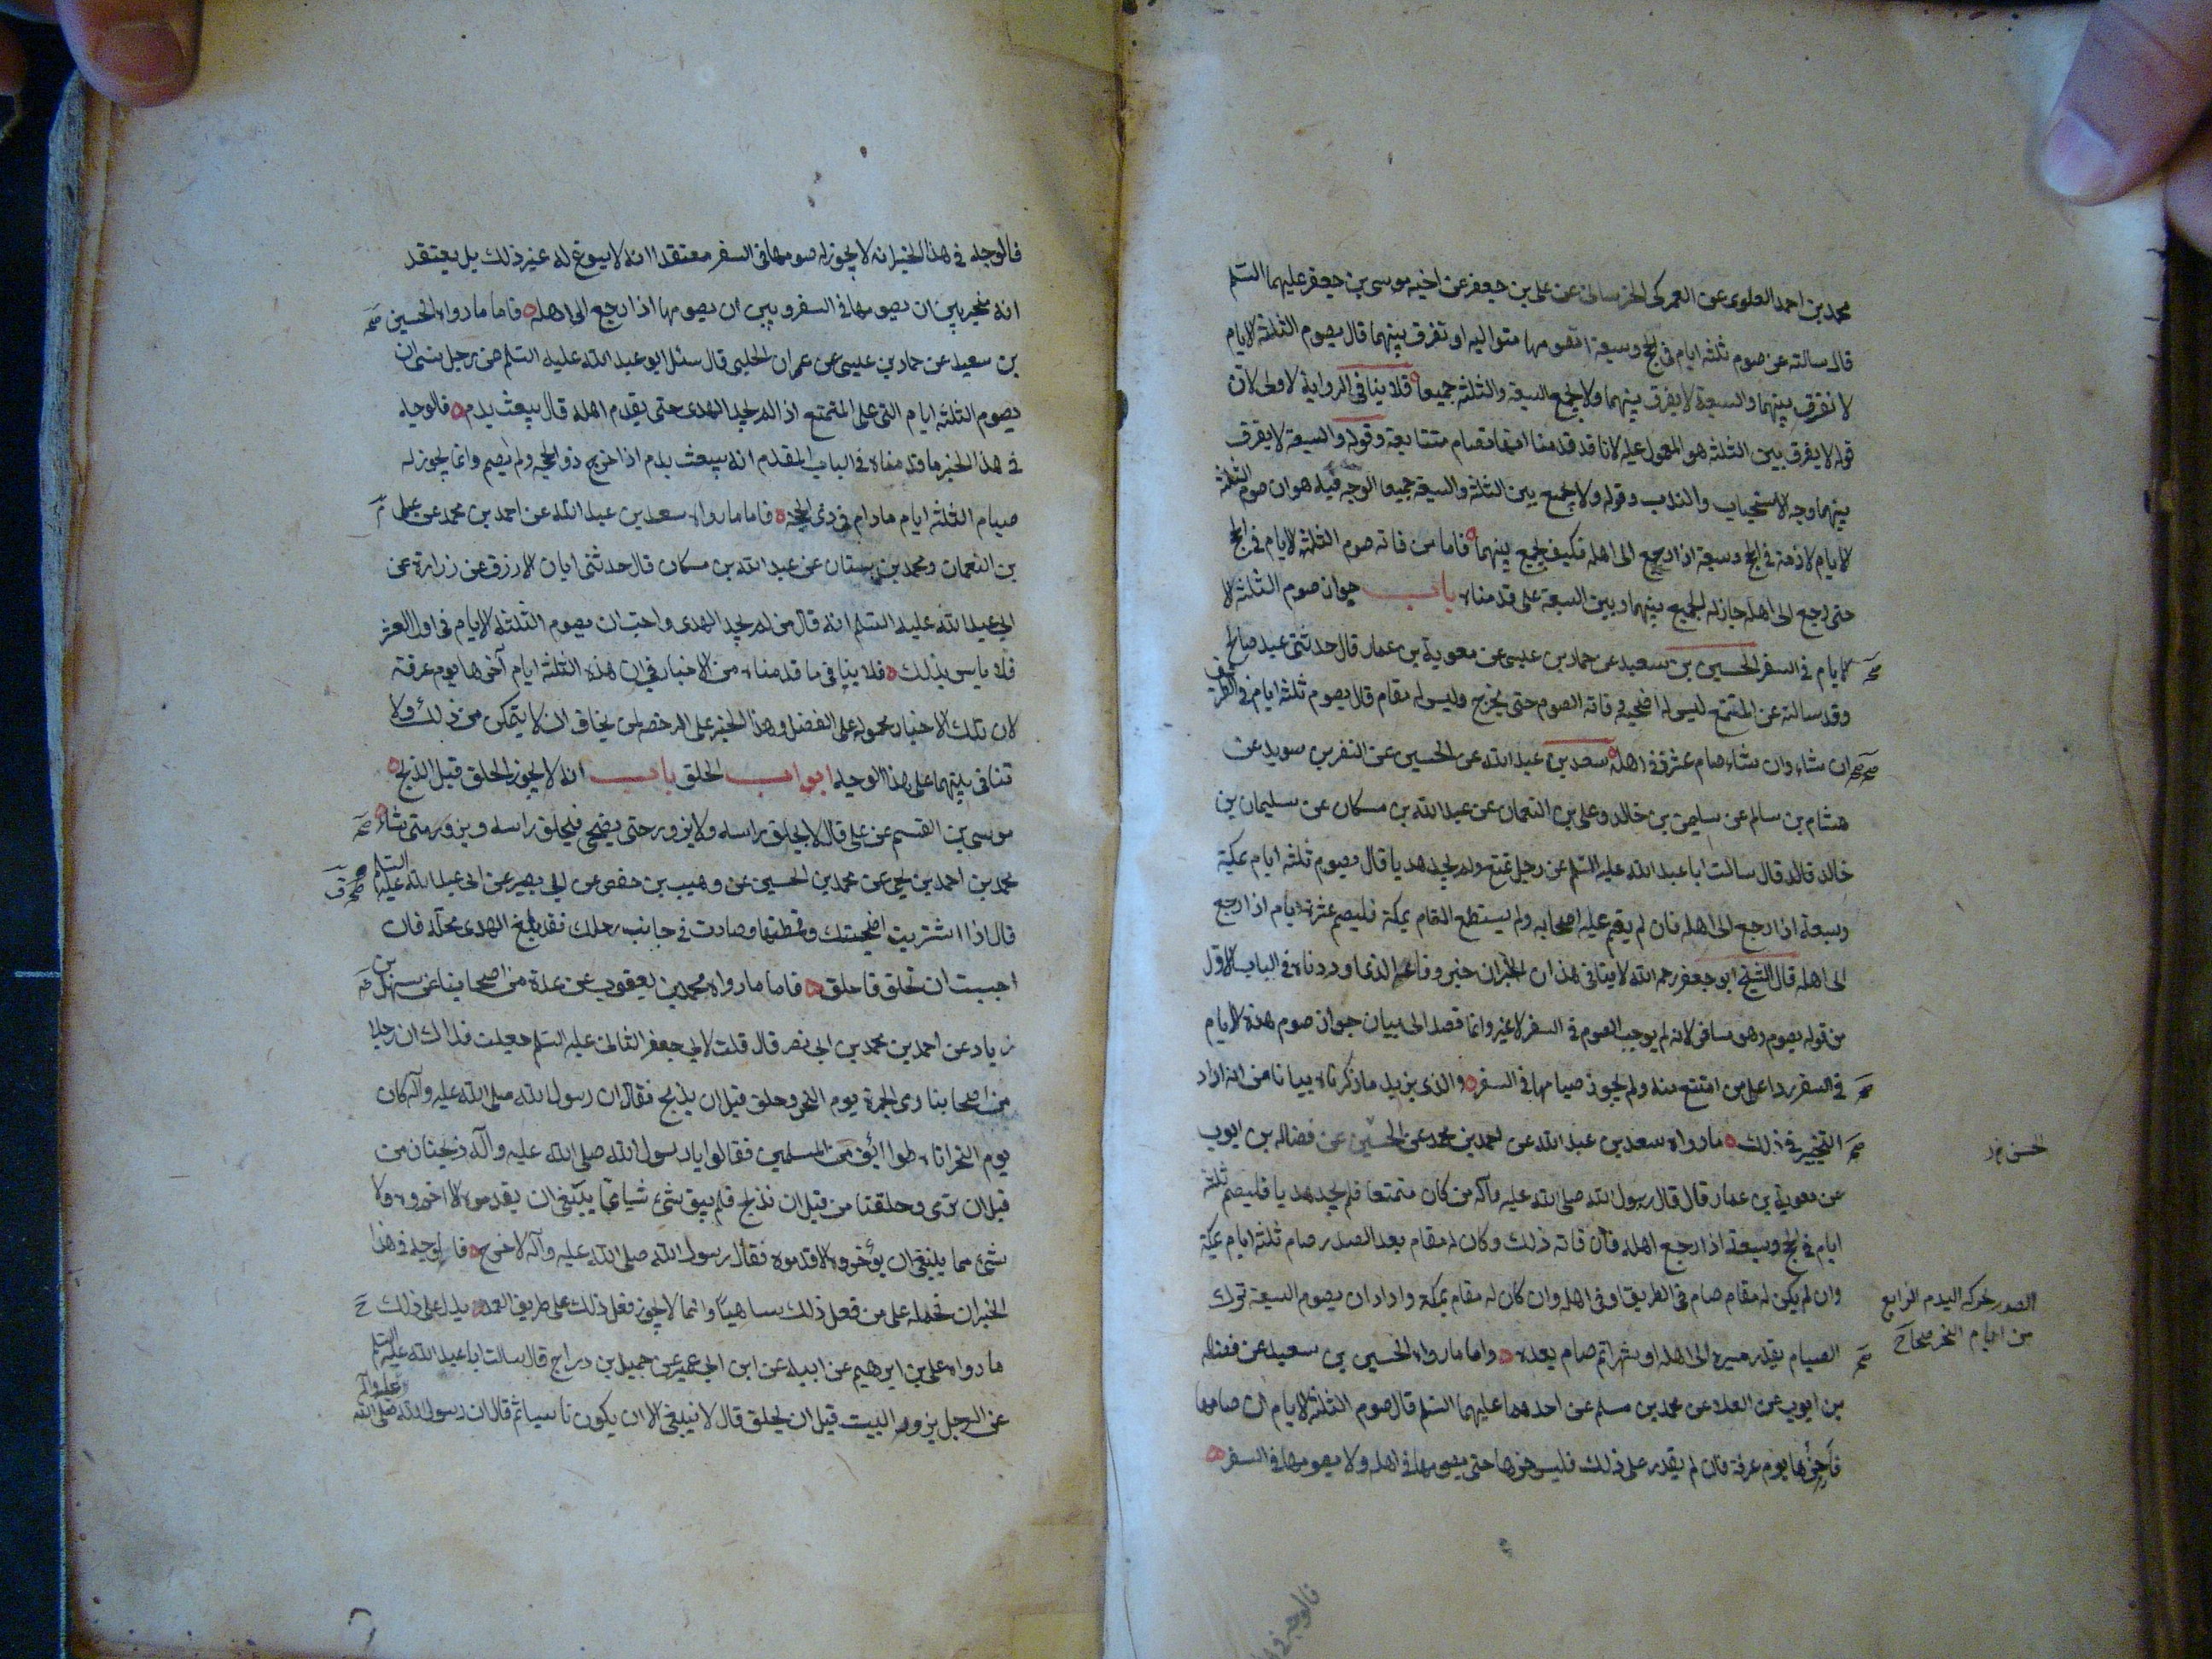 محمد بن احمد العلوى عن العمركى الخراسانى عن على بن جعفر عن اخيه موسى بن جعفر عليهما السلم
قال سالته عن صوم ثلثه ايام فى الحج وسبعة اتصومها متواليه او تفرق بينهما قال يصوم الثلثة الايام
لا تفرق بينهما والسبعة لا يفرق بينهما ولا يجمع السبعة والثلثة جميعا فلا ينافى الرواية الاولى لان
قوله لا يفرق بين الثلثه هو المعول عليه لانا قد قدمنا انها تصام متتابعة وقوله والسبعة لا يفرق
بينهما وجه الاستحباب والندب وقوله ولا يجمع بين الثلثة والسبعة جميعا الوجه فيه هو ان صوم الثلثة
الايام لازمة فى الحج وسبعة اذا رجع الى اهله فكيف يجمع بينهما فاما من فاته صوم الثلثة الايام فى الحج
حتى رجع الى اهله جاز له الجمع بينهما وبين السبعة على قدمناه باب جواز صوم الثلثة الا
لايام فى السفر الحسين بن سعيد عن حماد بن عيسى عن معوية بن عمار قال حدثنى عبد صالح
وقد سالته عن المتمتع ليس له اضحية وفاته الصوم حتى يخرج وليس له مقام قال يصوم ثلثة ايام فى الطريق
ان شاء وان شاء صام عشرة فى اهله سعد بن عبد الله عن الحسين عن النضر بن سويد عن
هشام بن سالم عن سليمن بن خالد وعلى بن النعمان عن عبد الله بن مسكان عن سليمان بن
خالد قال قال سالت ابا عبد الله عليه السلم عن رجل تمتع ولم يجد هديا قال يصوم ثلثه ايام بمكة
وسبعة اذا رجع الى اهله فان لم يقم عليه اصحابه ولم يستطع المقام بمكة فليصم عشرة ايام اذا رجع
الى اهله قال الشيخ ابو جعفر رحمه الله لا ينافى هذان الخبران خبر رفاعه الذى اوردناه فى الباب الاول
من قوله يصوم وهو مسافر لانه لم يوجب الصوم فى السفر لا غير وانما قصد الى بيان جواز صوم هذه الايام
فى السفر ردا على من امتنع منه ولم يجوز صيامها فى السفر والذى يزيد ما ذكرناه بيانا من انه اراد
التخيير فى ذلك ما رواه سعد بن عبد الله عن احمد بن محمد عن الحسين عن فضاله بن ايوب
عن معوية بن عمار قال قال رسول الله صلى الله عليه وآله من كان متمتعا فلم يجد هديا فليصم ثلثة
ايام فى الحج وسبعة اذا رجع اهله فان فاته ذلك وكان له مقام بعد الصدر صام ثلثة ايام بمكة
وان لم يكن له مقام صام فى الطريق او فى اهله وان كان له مقام بمكة واراد ان يصوم السبعة ترك
الصيام بقدر مسيره الى اهله او شهرا ثم صام بعده واما ما رواه الحسين بن سعيد عن فضاله
بن ايوب عن العلاء عن محمد بن مسلم عن احدهما عليهما السلم قال صوم الثلثة الايام ان صامها
فآخرها يوم عرفة فان لم يقدر على ذلك فليؤخرها حتى يصومها فى اهله ولا يصومها فى السفر
الصدر محركه اليوم الرابع
من ايام النحر صحاح
فالوجه فى
فالوجه فى هذا الخبر انه لا يجوز له صومها فى السفر معتقدا انه لا يسوغ له غير ذلك بل يعتقد
انه مخير بين ان يصومها فى السفر وبين ان يصومها اذا رجع الى اهله فاما ما رواه الحسين
بن سعيد عن حماد بن عيسى عن عمران الحلبى قال سئل ابو عبد الله عليه السلم عن رجل نسى ان
يصوم الثلثه ايام التى على المتمتع اذا لم يجد الهدى حتى يقدم اهله قال يبعث بدم فالوجه
فى هذا الخبر ما قدمناه فى الباب المقدم انه يبعث بدم اذا خرج ذو الحجه ولم يصم وانما يجوز له
صيام الثلثه ايام مادام فى ذى الحجه فاما ما رواه سعد بن عبد الله عن احمد بن محمد عن على
بن النعمان ومحمد بن سنان عن عبد الله بن مسكان قال حدثنى ابان الازرق عن زرارة عن
ابى عبد الله عليه السلم انه قال من لم يجد الهدى واحب ان يصوم الثلثة الايام فى اول العشر
فلا باس بذلك فلا ينافى ما قدمناه من الاخبار فى ان هذه الثلثة ايام آخرها يوم عرفة
لان تلك الاخبار محموله على الفضل وهذا الخبر على الرخصه لمن يخاف ان لا يتمكن من ذلك ولا
تنافى بينهما على هذا الوجه ابواب الحلق باب انه لا يجوز الحلق قبل الذبح
موسى بن القسم عن على قال لا يحلق راسه ولا يزور حتى يضحى فيحلق راسه ويزور متى شاء
محمد بن احمد بن يحيى عن محمد بن الحسين عن وهيب بن حفص عن ابى بصير عن ابى عبد الله عليه السلم
قال اذا اشتريت اضحيتك وقمطتها وصارت فى جانب رحلك فقد بلغ الهدى محله فان
احببت ان تحلق فاحلق فاما ما رواه محمد بن يعقوب عن عدة من اصحابنا عن سهل بن
زياد عن احمد بن محمد بن ابى نصر قال قلت لابى جعفر الثانى عليه السلم جعلت فداك ان رجلا
من اصحابنا رمى الجمرة يوم النحر وحلق قبل ان يذبح فقال ان رسول الله صلى الله عليه وآله كان
يوم النحر اتاه طوائف من المسلمين فقالوا يا رسول الله صلى الله عليه وآله ذبحنا من
قبل ان نرمى وحلقنا من قبل ان نذبح فلم يبق شىء مما ينبغى ان يقدموه الا اخروه ولا
شىء مما ينبغى ان يؤخروه الا قدموه فقال رسول الله صلى الله عليه وآله لا حرج فالوجه فى هذا
الخبر ان نحمله على من فعل ذلك ساهيا وانما لا يجوز فعل ذلك على طريق العمد يدل على ذلك
ما رواه على بن ابرهيم عن ابيه عن ابن ابى عمير عن جميل بن دراج قال سالت ابا عبد الله عليه السلم
عن الرجل يزور البيت قبل ان يحلق قال لا ينبغى الا ان يكون ناسيا ثم قال ان رسول الله صلى الله عليه وآله